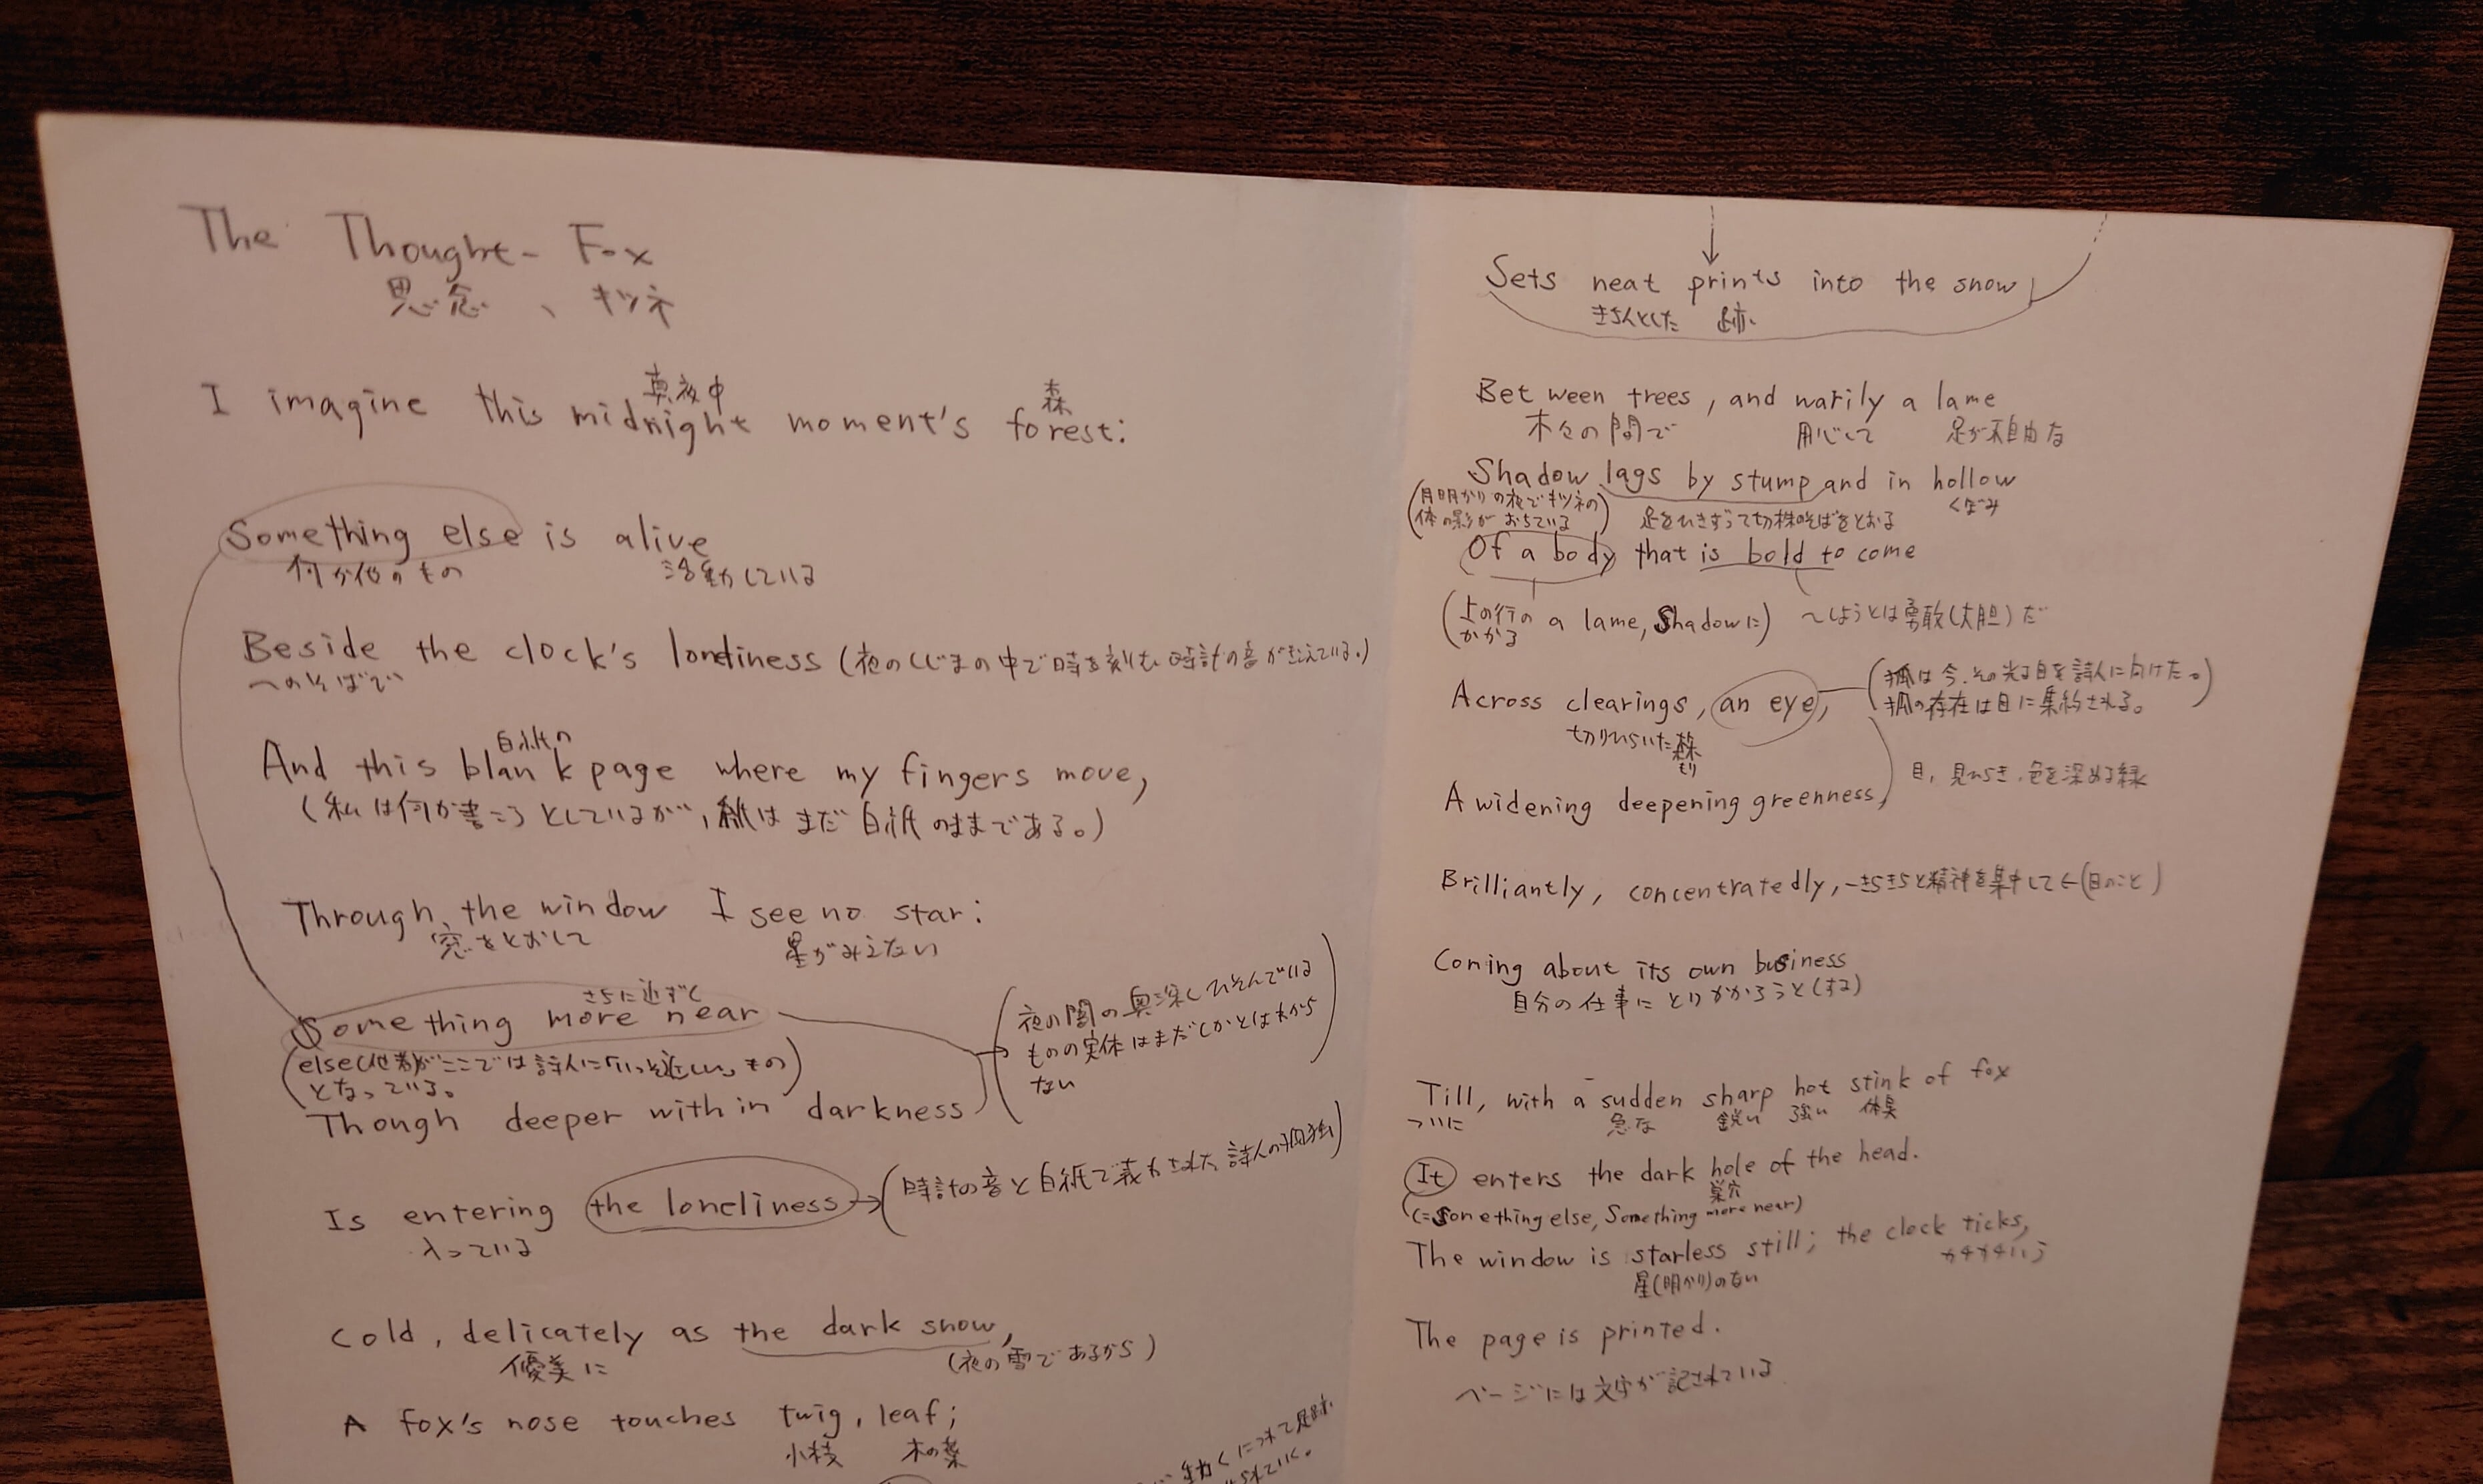 The Thought-Fox
思念、キツネ
真夜中 森
I imagine this midnight moment's forest:
Something else is alive
何か他のもの 活動している
Beside the clock's lonliness (夜のしじまの中で時を刻む時計の音がきこえている。)
〜のそばで
白紙の
And this blank page where my fingers move,
(私は何か書こうとしているが、紙はまだ白紙のままである。)
Through the window I see no star:
窓をとおして 星がみえない
さらに近ずく
Something more near
(else(他者)がここでは詩人に「いっそ近しい」もの
となっている。)
(夜の闇の奥深くひそんでいる
ものの実体はまだしかとはわから
ない)
Though deeper within darkness
Is entering the loneliness → (時計の音と白紙で義かされた詩人の孤独)
入っている
Cold, delicately as the dark snow,
優美に (夜の雪であるから)
A fox's nose touches twig, leaf;
小枝 木の葉
動くにつれて足跡
られていく。
Sets neat prints into the snow
きちんとした 跡
Between trees, and warily a lame
木々の間で 用心して 足が不自由な
Shadow lags by stump and in hollow
(月明かりの夜でキツネの
体の影がおちている) 足をひきずって切株のそばをとおる くぼみ
Of a body that is bold to come
(上の行の a lame, Shadowに
かかる) 〜しようとは勇敢(大胆)だ
Across clearings, an eye, (狐は今、その光る目を詩人に向けた。
狐の存在は目に集約される。)
切りひらいた森
もり
目、見ひらき、色を深める緑
A widening deepening greenness,
Brilliantly, concentratedly, -きらきらと精神を集中して←(目のこと)
Coming about its own business
自分の仕事にとりかかろうと(する)
Till, with a sudden sharp hot stink of fox
ついに 急な 鋭い 強い 体臭
It enters the dark hole of the head.
巣穴
(=Something else, Something more near)
The window is starless still; the clock ticks,
星(明かり)のない カチカチいう
The page is printed.
ページには文字が記されている